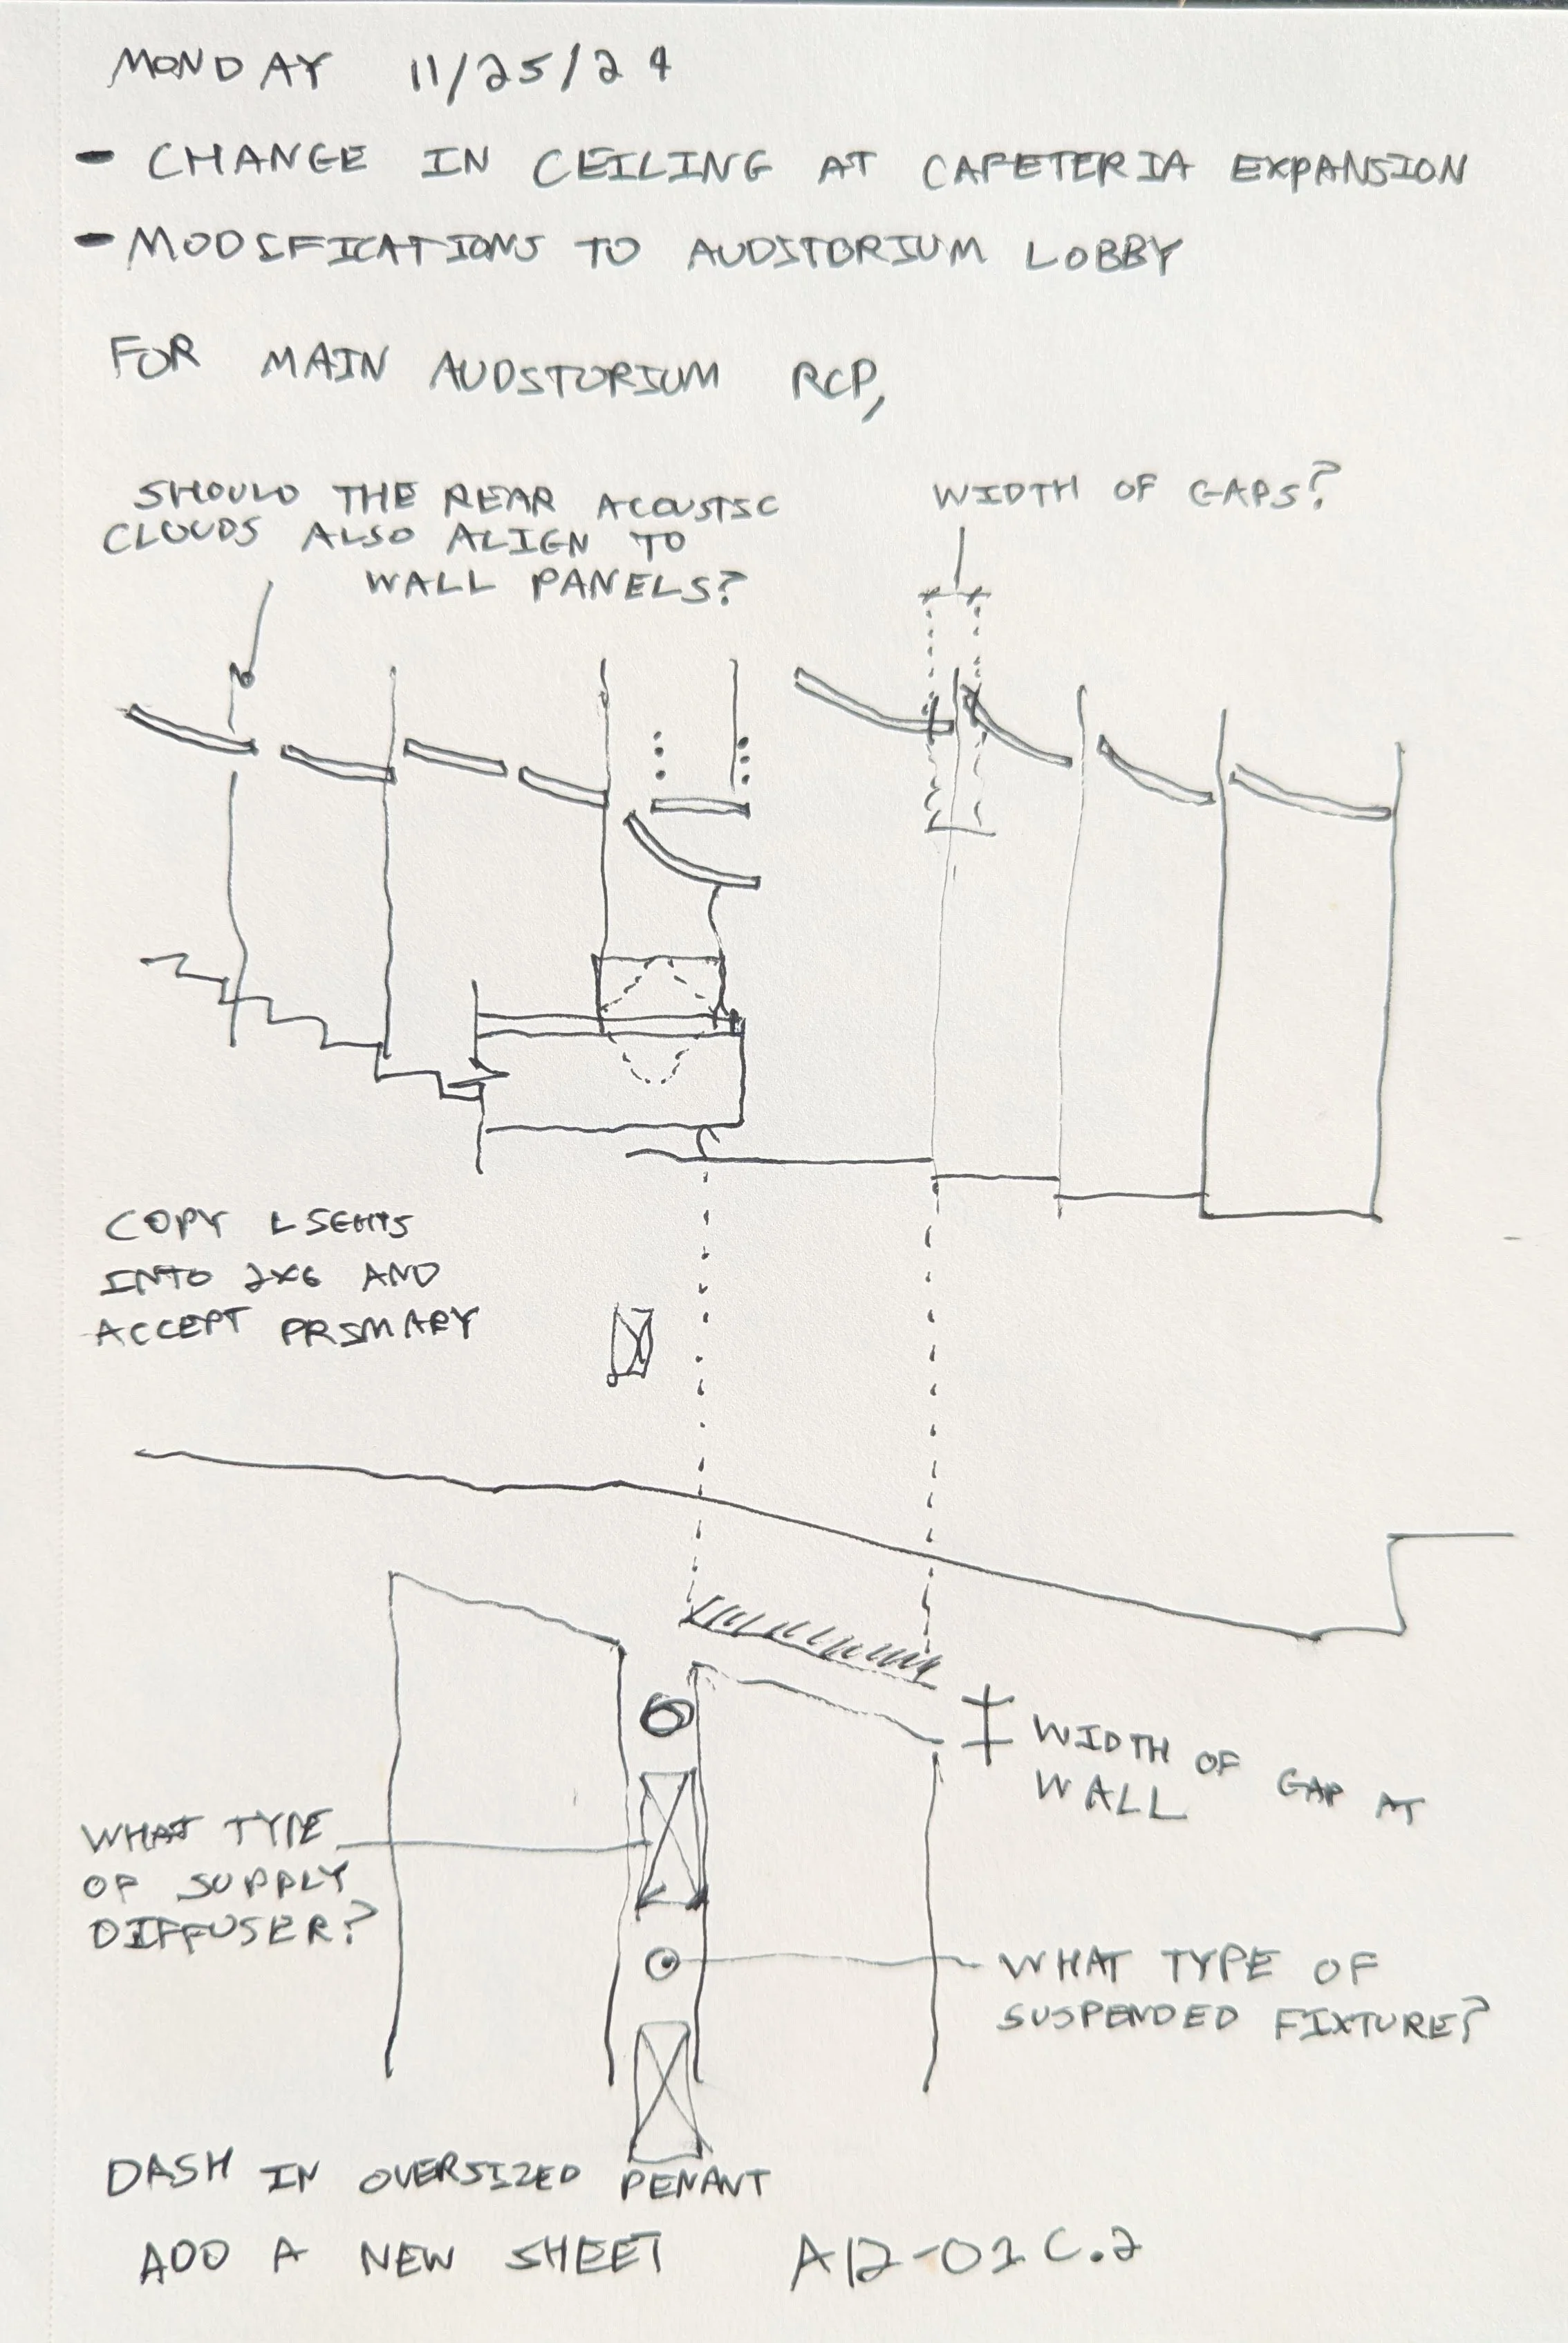 MONDAY 11/25/24
- CHANGE IN CEILING AT CAFETERIA EXPANSION
- MODIFICATIONS TO AUDITORIUM LOBBY
FOR MAIN AUDITORIUM RCP,
SHOULD THE REAR ACOUSTIC
CLOUDS ALSO ALIGN TO
WALL PANELS?
WIDTH OF GAPS?
COPY LIGHTS
INTO 2X6 AND
ACCEPT PRIMARY
WIDTH OF GAP AT
WALL
WHAT TYPE
OF SUPPLY
DIFFUSER?
WHAT TYPE OF
SUSPENDED FIXTURE?
DASH IN OVERSIZED PENANT
ADD A NEW SHEET A12-01C.2